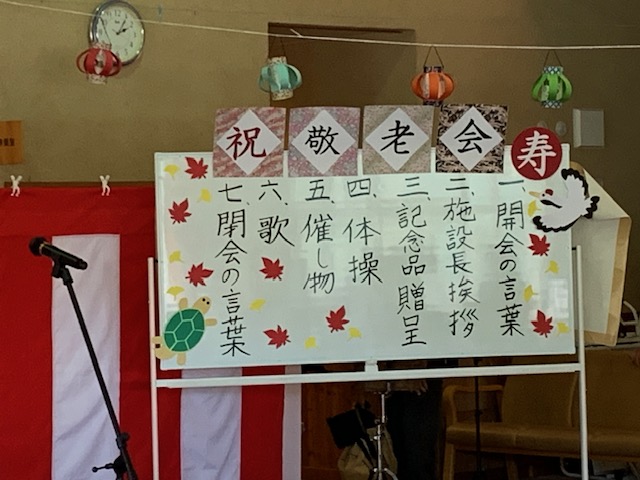 祝敬老会
寿
一、開会の言葉
二、施設長挨拶
三、記念品贈呈
四、体操
五、催し物
六、歌
七、閉会の言葉